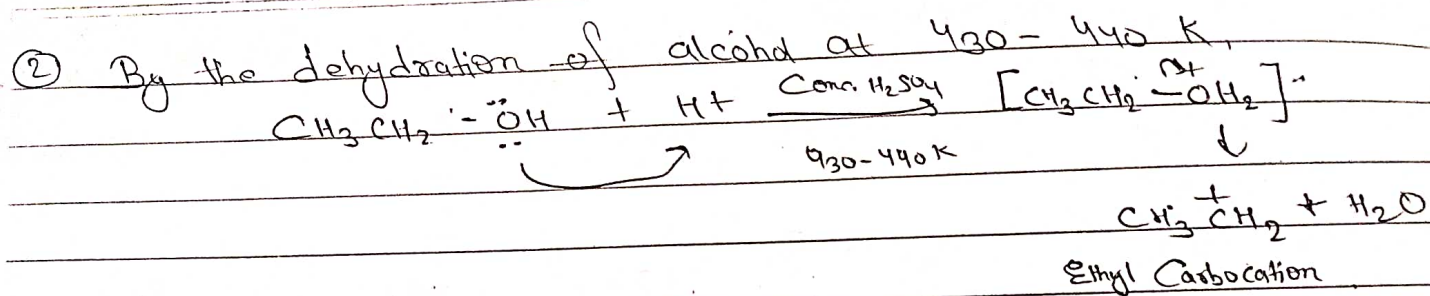 ② By the dehydration of alcohol at 430 - 440 K,
CH3 CH2 - ÖH + H+ Conc. H2SO4 [CH3 CH2 - OH2]
430-440 K ↓
CH3 C+H2 + H2O
Ethyl Carbocation